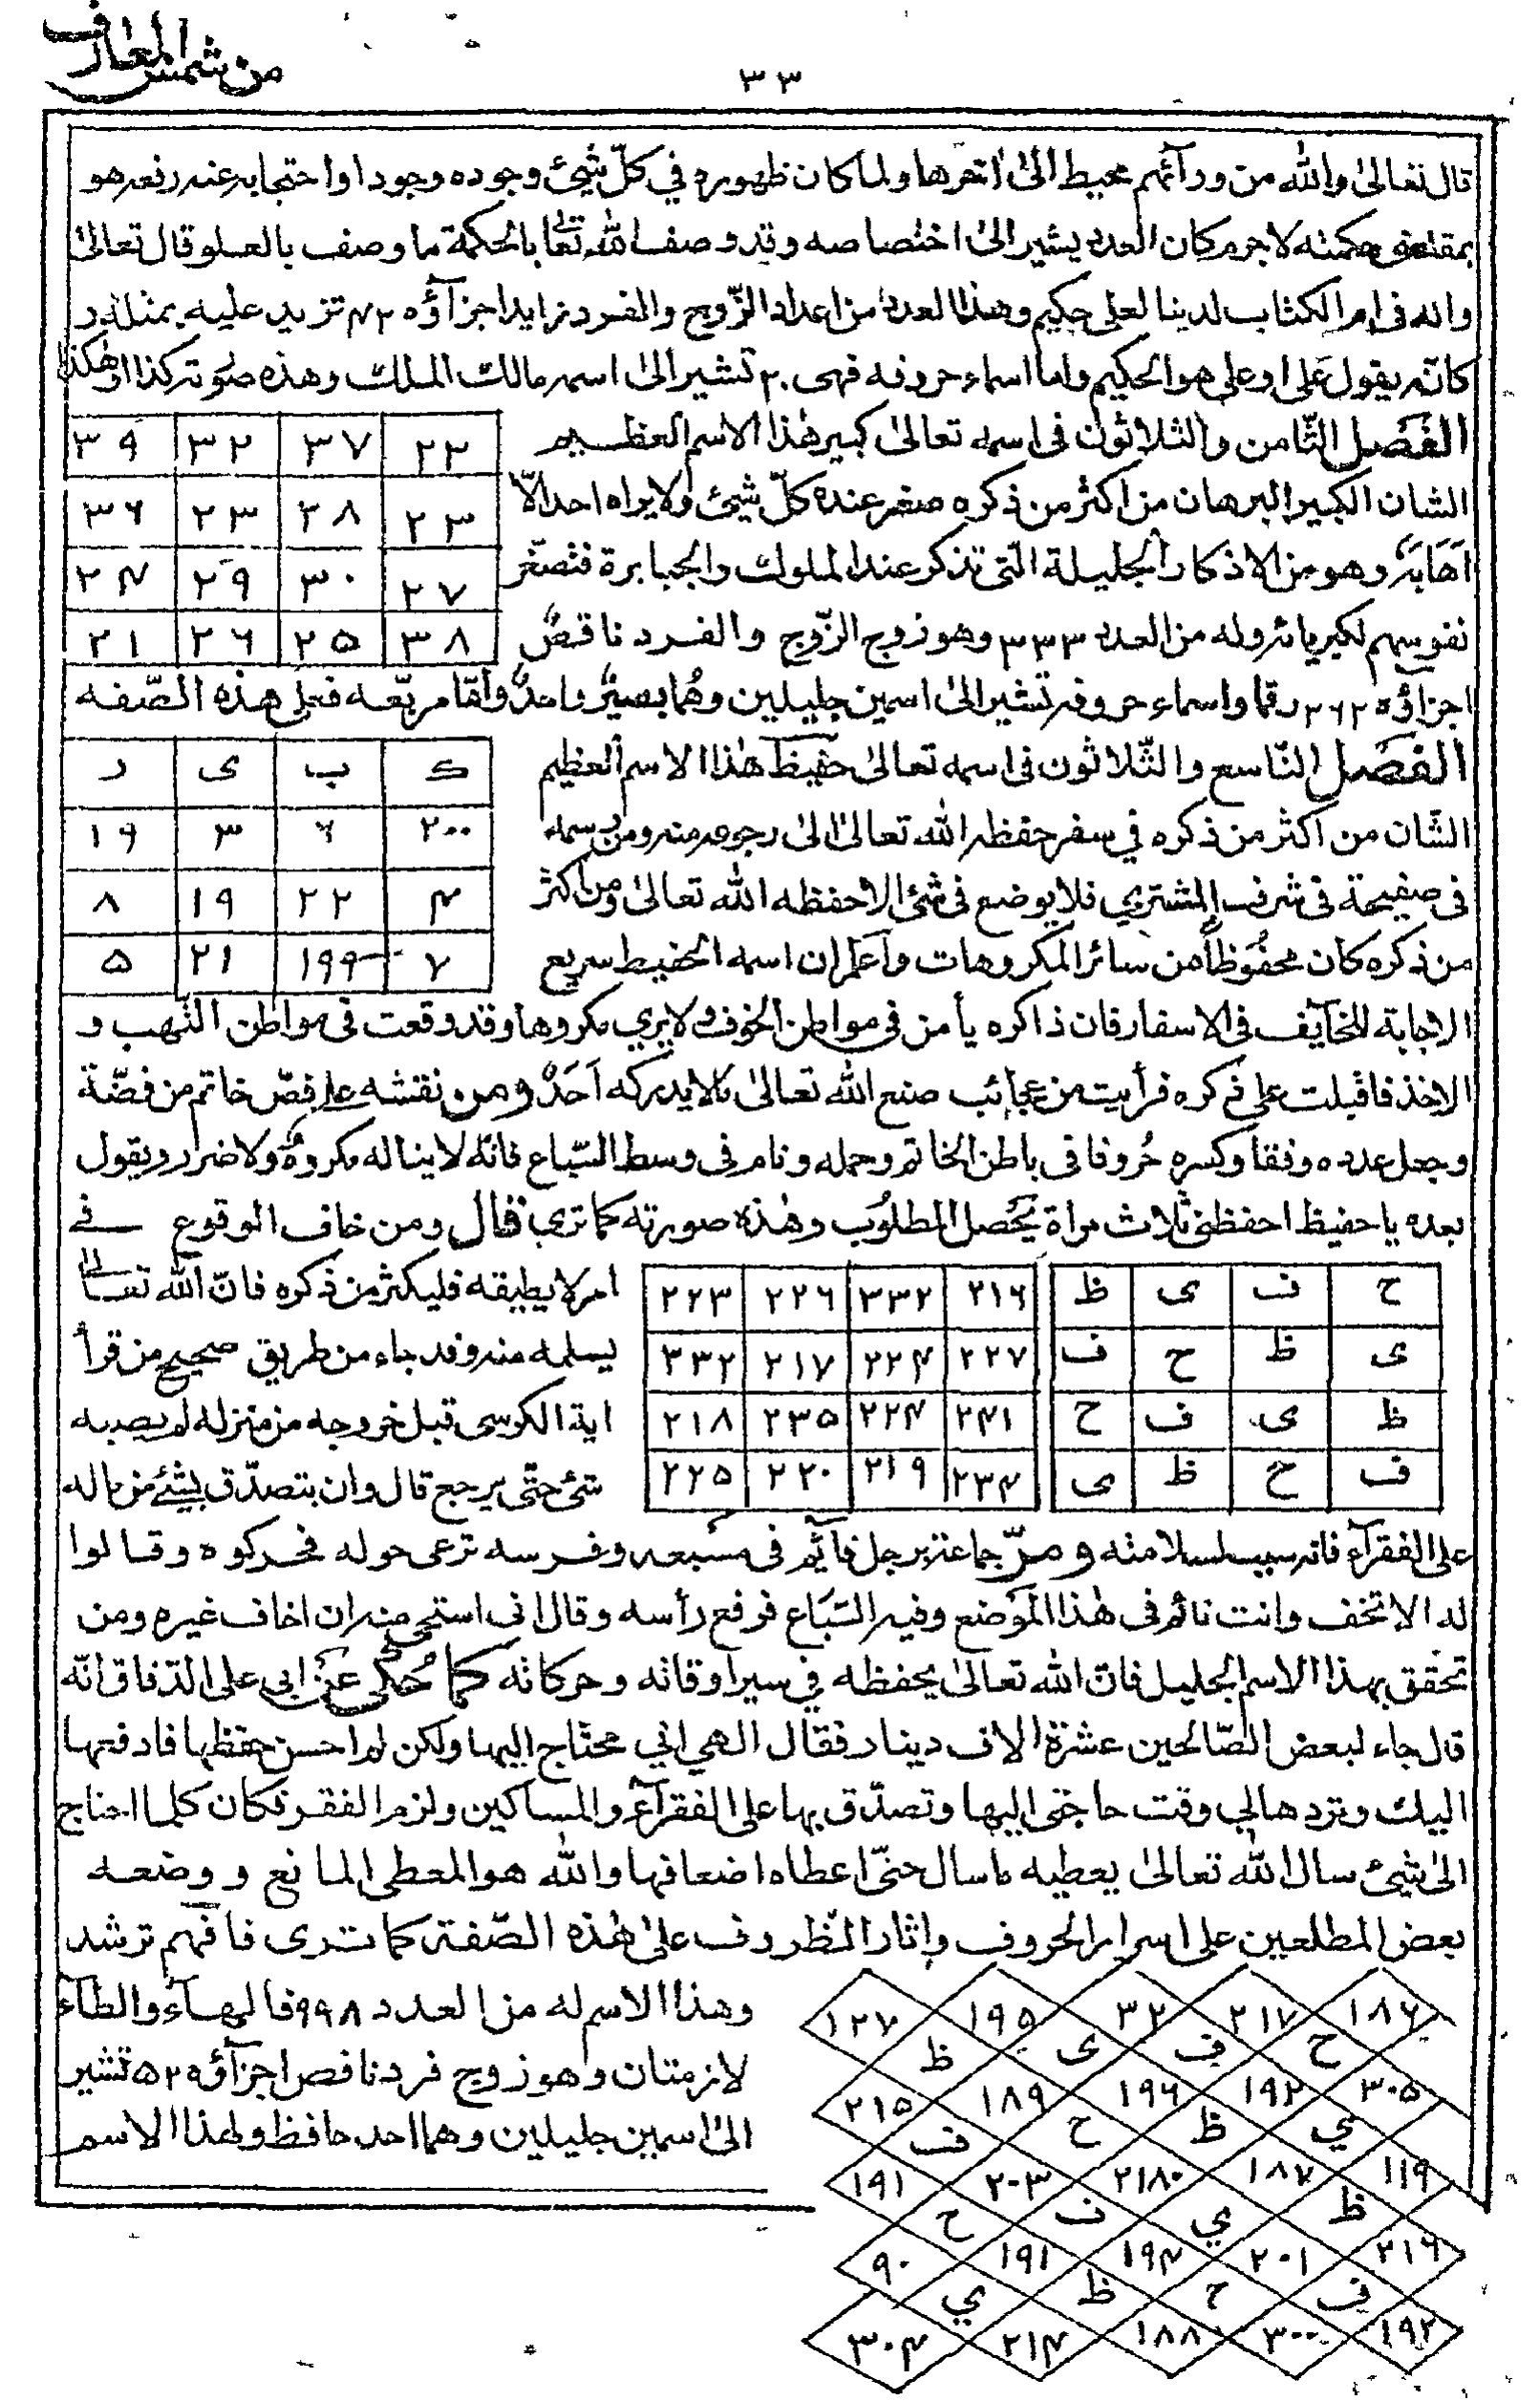 من شمس المعارف
٣٣
قال تعالى والله من ورآئهم محيط الى اخرها ولما كان ظهوره في كل شيئ وجوده وجودا واحتجابه عنه رفعه هو
بمقتضى حكمته لا جرم كان العدد يشير الى اختصاصه وقد وصف الله تعا بالحكمة ما وصف بالعلو قال تعالى
وانه فى ام الكتاب لدينا لعلى حكيم وهذا العدد من اعداد الزّوج والفرد زايد اجزآؤه ٤٢ تزيد عليه بمثله و
كانه يقول على او على هو الحكيم واما اسماء حروفه فهى ٣٠ تشير الى اسمه مالك الملك وهذه صورته كذا او هكذا
الفصل الثّامن والثلاثون فى اسمه تعالى كبير هذا الاسم العظيم
٢٢ ٣٧ ٣٢ ٣٩
الشان الكبير البرهان من اكثر من ذكره صغر عنده كلّ شيئ ولا يراه احد الّا
٢٣ ٢٨ ٢٣ ٣٦
اهابه وهو من الاذكار الجليلة الّتى تذكر عند الملوك والجبابرة فتصغّر
٢٧ ٣٠ ٢٩ ٢٤
نفوسهم لكبريائه وله من العدد ٣٣٣ وهو زوج الزّوج والفرد ناقص
٣٨ ٢٥ ٢٦ ٢١
اجزآؤه ٣٦٢ رقما واسماء حروفه تشير الى اسمين جليلين وهما بصير واحد وامّا مربّعه فعلى هذه الصّفه
الفصل التّاسع والثّلاثون فى اسمه تعالى حفيظ هذا الاسم العظيم
ك ب ى ر
الشّان من اكثر من ذكره في سفر حفظه الله تعالى الى رجوعه منه ومن رسمه
٢٠٠ ٦ ٣ ١٩
فى صفيحة فى شرف المشترى فلا يوضع فى شئ الا حفظه الله تعالى ومن اكثر
٤ ٢٢ ١٩ ٨
من ذكره كان محفوظا من سائر المكروهات واعلم ان اسمه الحفيظ سريع
٧ ١٩٩ ٢١ ٥
الاجابة للخآيف فى الاسفار فان ذاكره يأمن فى مواطن الخوف ولا يرى مكروها وقد وقعت فى مواطن النّهب و
الاخذ فاقبلت على ذكره فرأيت من عجائب صنع الله تعالى ما لا يدركه احد ومن نقشه على فصّ خاتم من فضّة
وجعل عدده وفقا وكسره حروفا فى باطن الخاتم وحمله ونام فى وسط السّباع فانّه لا يناله مكروه ولا ضرار ويقول
بعده يا حفيظ احفظنى ثلاث مراة يحصل المطلوب وهذه صورته كما ترى قال ومن خاف الوقوع فى
ح ف ى ظ ٢١٦ ٣٣٢ ٢٢٦ ٢٢٣
امر لا يطيقه فليكثر من ذكره فانّ الله تعالى
ى ظ ح ف ٢٢٧ ٢٢٤ ٢١٧ ٣٣٢
يسلمه منه وقد جاء من طريق صحيح من قرأ
ظ ى ف ح ٢٤١ ٢٢٤ ٢٣٥ ٢١٨
اية الكرسى قبل خروجه من منزله لم يصبه
ف ح ظ ى ٢٣٤ ٢١٩ ٢٢٠ ٢٢٥
شئ حتّى يرجع قال وان يتصدّق بشئ من ماله
على الفقرآء فانه سبب لسلامته ومرّ جماعة برجل نآئم فى مسبعه وفرسه ترعى حوله فحركوه وقالوا
له الا تخف وانت نائم فى هذا الموضع وفيه السّباع فرفع رأسه وقال انى استحى منه ان اخاف غيره ومن
تحقق بهذا الاسم الجليل فانّ الله تعالى يحفظه في سير اوقاته وحركاته كما حكى عن ابى على الدّقاق انّه
قال جاء لبعض الصّالحين عشرة الاف دينار فقال الهي اني محتاج اليها ولكن لم احسن حفظها فادفعها
اليك وتردها لي وقت حاجتى اليها وتصدّق بها على الفقرآء والمساكين ولزم الفقر فكان كلما احتاج
الى شيئ سال الله تعالى يعطيه ما سال حتّى اعطاه اضعافها والله هو المعطى المانع ووضعه
بعض المطلعين على اسرار الحروف واثار الظروف على هذه الصّفة كما ترى فافهم ترشد
وهذا الاسم له من العدد ٩٩٨ فالهآء والطآء
لازمتان وهو زوج فرد ناقص اجزآؤه ٥٢٥ تشير
الى اسمين جليلين وهما احد حافظ ولهذا الاسم
١٨٦ ٢١٧ ٣٢ ١٩٥ ١٢٧
ح ف ى ظ
٣٠٥ ١٩٢ ١٩٦ ١٨٩ ٢١٥
ي ظ ح ف
١١٩ ١٨٧ ٢١٨٠ ٢٠٣ ١٩١
ظ ي ف ح
٢١٦ ٢٠١ ١٩٤ ١٩١ ٩٠
ف ح ظ ي
١٩٢ ٣٠٠ ١٨٨ ٢١٤ ٣٠٤